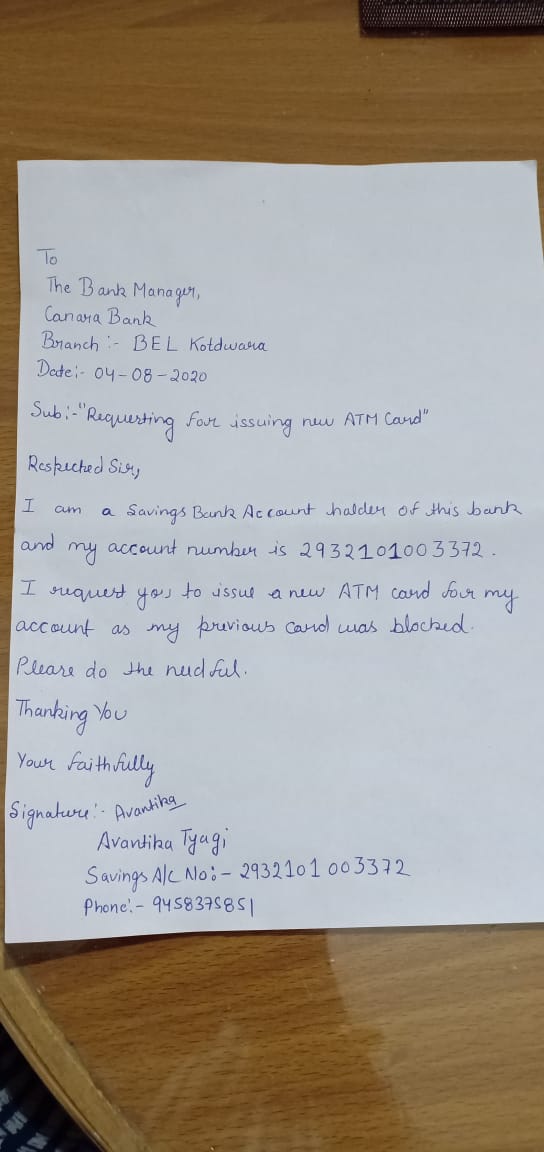 To
The Bank Manager,
Canara Bank
Branch :- BEL Kotdwara
Date :- 04-08-2020
Sub :- "Requesting for issuing new ATM Card"
Respected Sir,
I am a Savings Bank Account holder of this bank
and my account number is 2932101003372.
I request you to issue a new ATM card for my
account as my previous card was blocked.
Please do the needful.
Thanking You
Your faithfully
Signature :- Avantika
Avantika Tyagi
Savings A/c No :- 2932101003372
Phone :- 9458375851